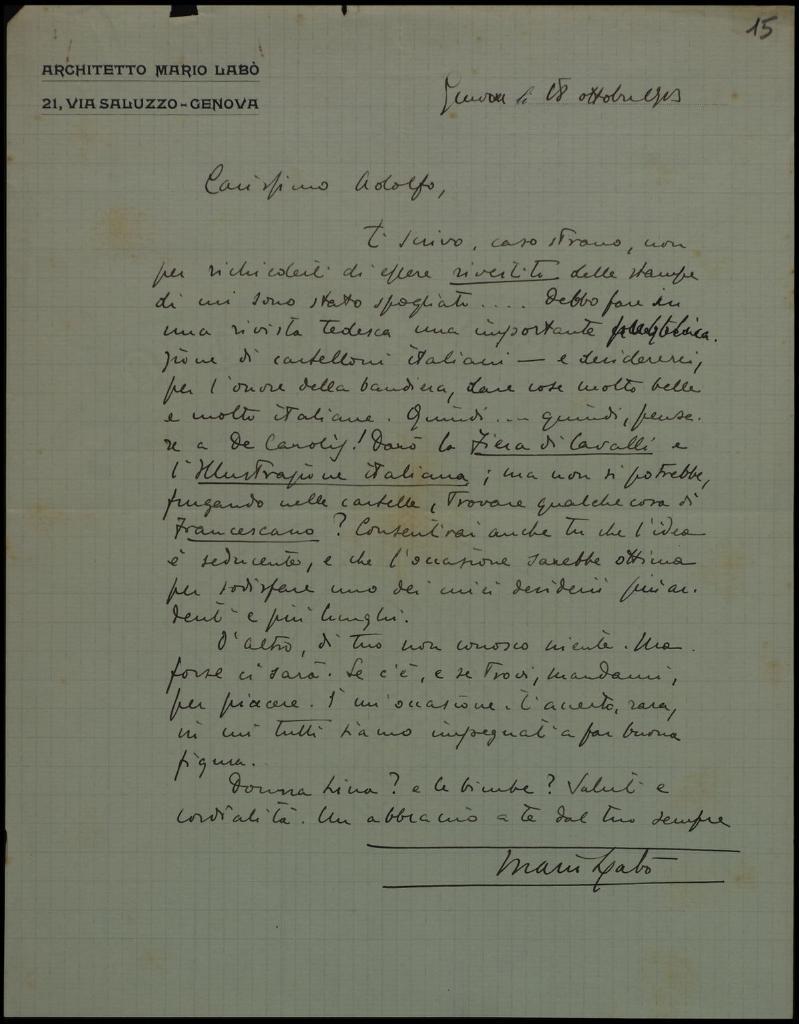 15
ARCHITETTO MARIO LABÒ
21, VIA SALUZZO - GENOVA
Genova li 18 ottobre 1913
Carissimo Adolfo,
ti scrivo, caso strano, non
per richiederti di essere rivestito delle stampe
di cui sono stato spogliato .... Debbo fare in
una rivista tedesca una importante pubblica-
zione di cartelloni italiani — e desidererei,
per l'onore della bandiera, dare cose molto belle
e molto italiane. Quindi ... quindi, pensa-
re a De Carolis! Darò la Fiera di Cavalli e
l'Illustrazione italiana; ma non si potrebbe,
frugando nelle cartelle, trovare qualche cosa di
Francescano? Consentirai anche tu che l'idea
è seducente, e che l'occasione sarebbe ottima
per sodisfare uno dei miei desiderii più ar-
denti e più lunghi.
D'altro, di tuo non conosco niente. Ma
forse ci sarà. Se c'è, e se trovi, mandami,
per piacere. È un'occasione, t'accerto, rara,
in cui tutti siamo impegnati a far buona
figura.
Donna Lina? e le bimbe? Saluti e
cordialità. Un abbraccio a te dal tuo sempre
Mario Labò